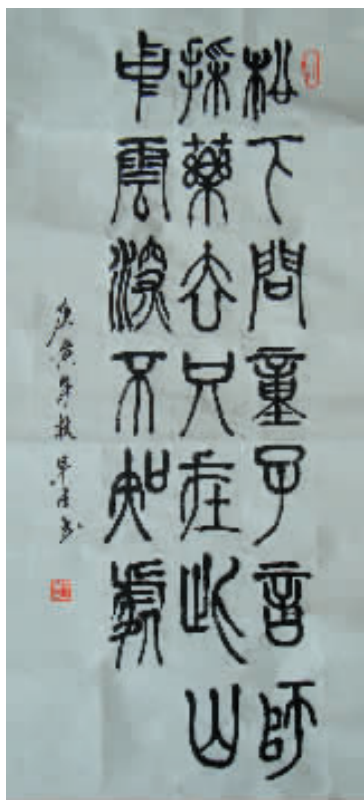 松下問童子言師
採藥去只在此山
中雲深不知處
庚寅年秋